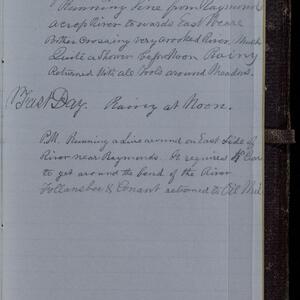 Running Line from Raymond
across River to wards East Weare
Bother Crossing very crooked River. Much
Quite a Shower before Noon Rainy
Returned With all Tools around Meadows.
Fast Day. Rainy at Noon.
P.M. Running a Line around on East Side of
River near Raymonds. It required
to get around the bend of the River
Follansbee & Conant returned to Oil Mil